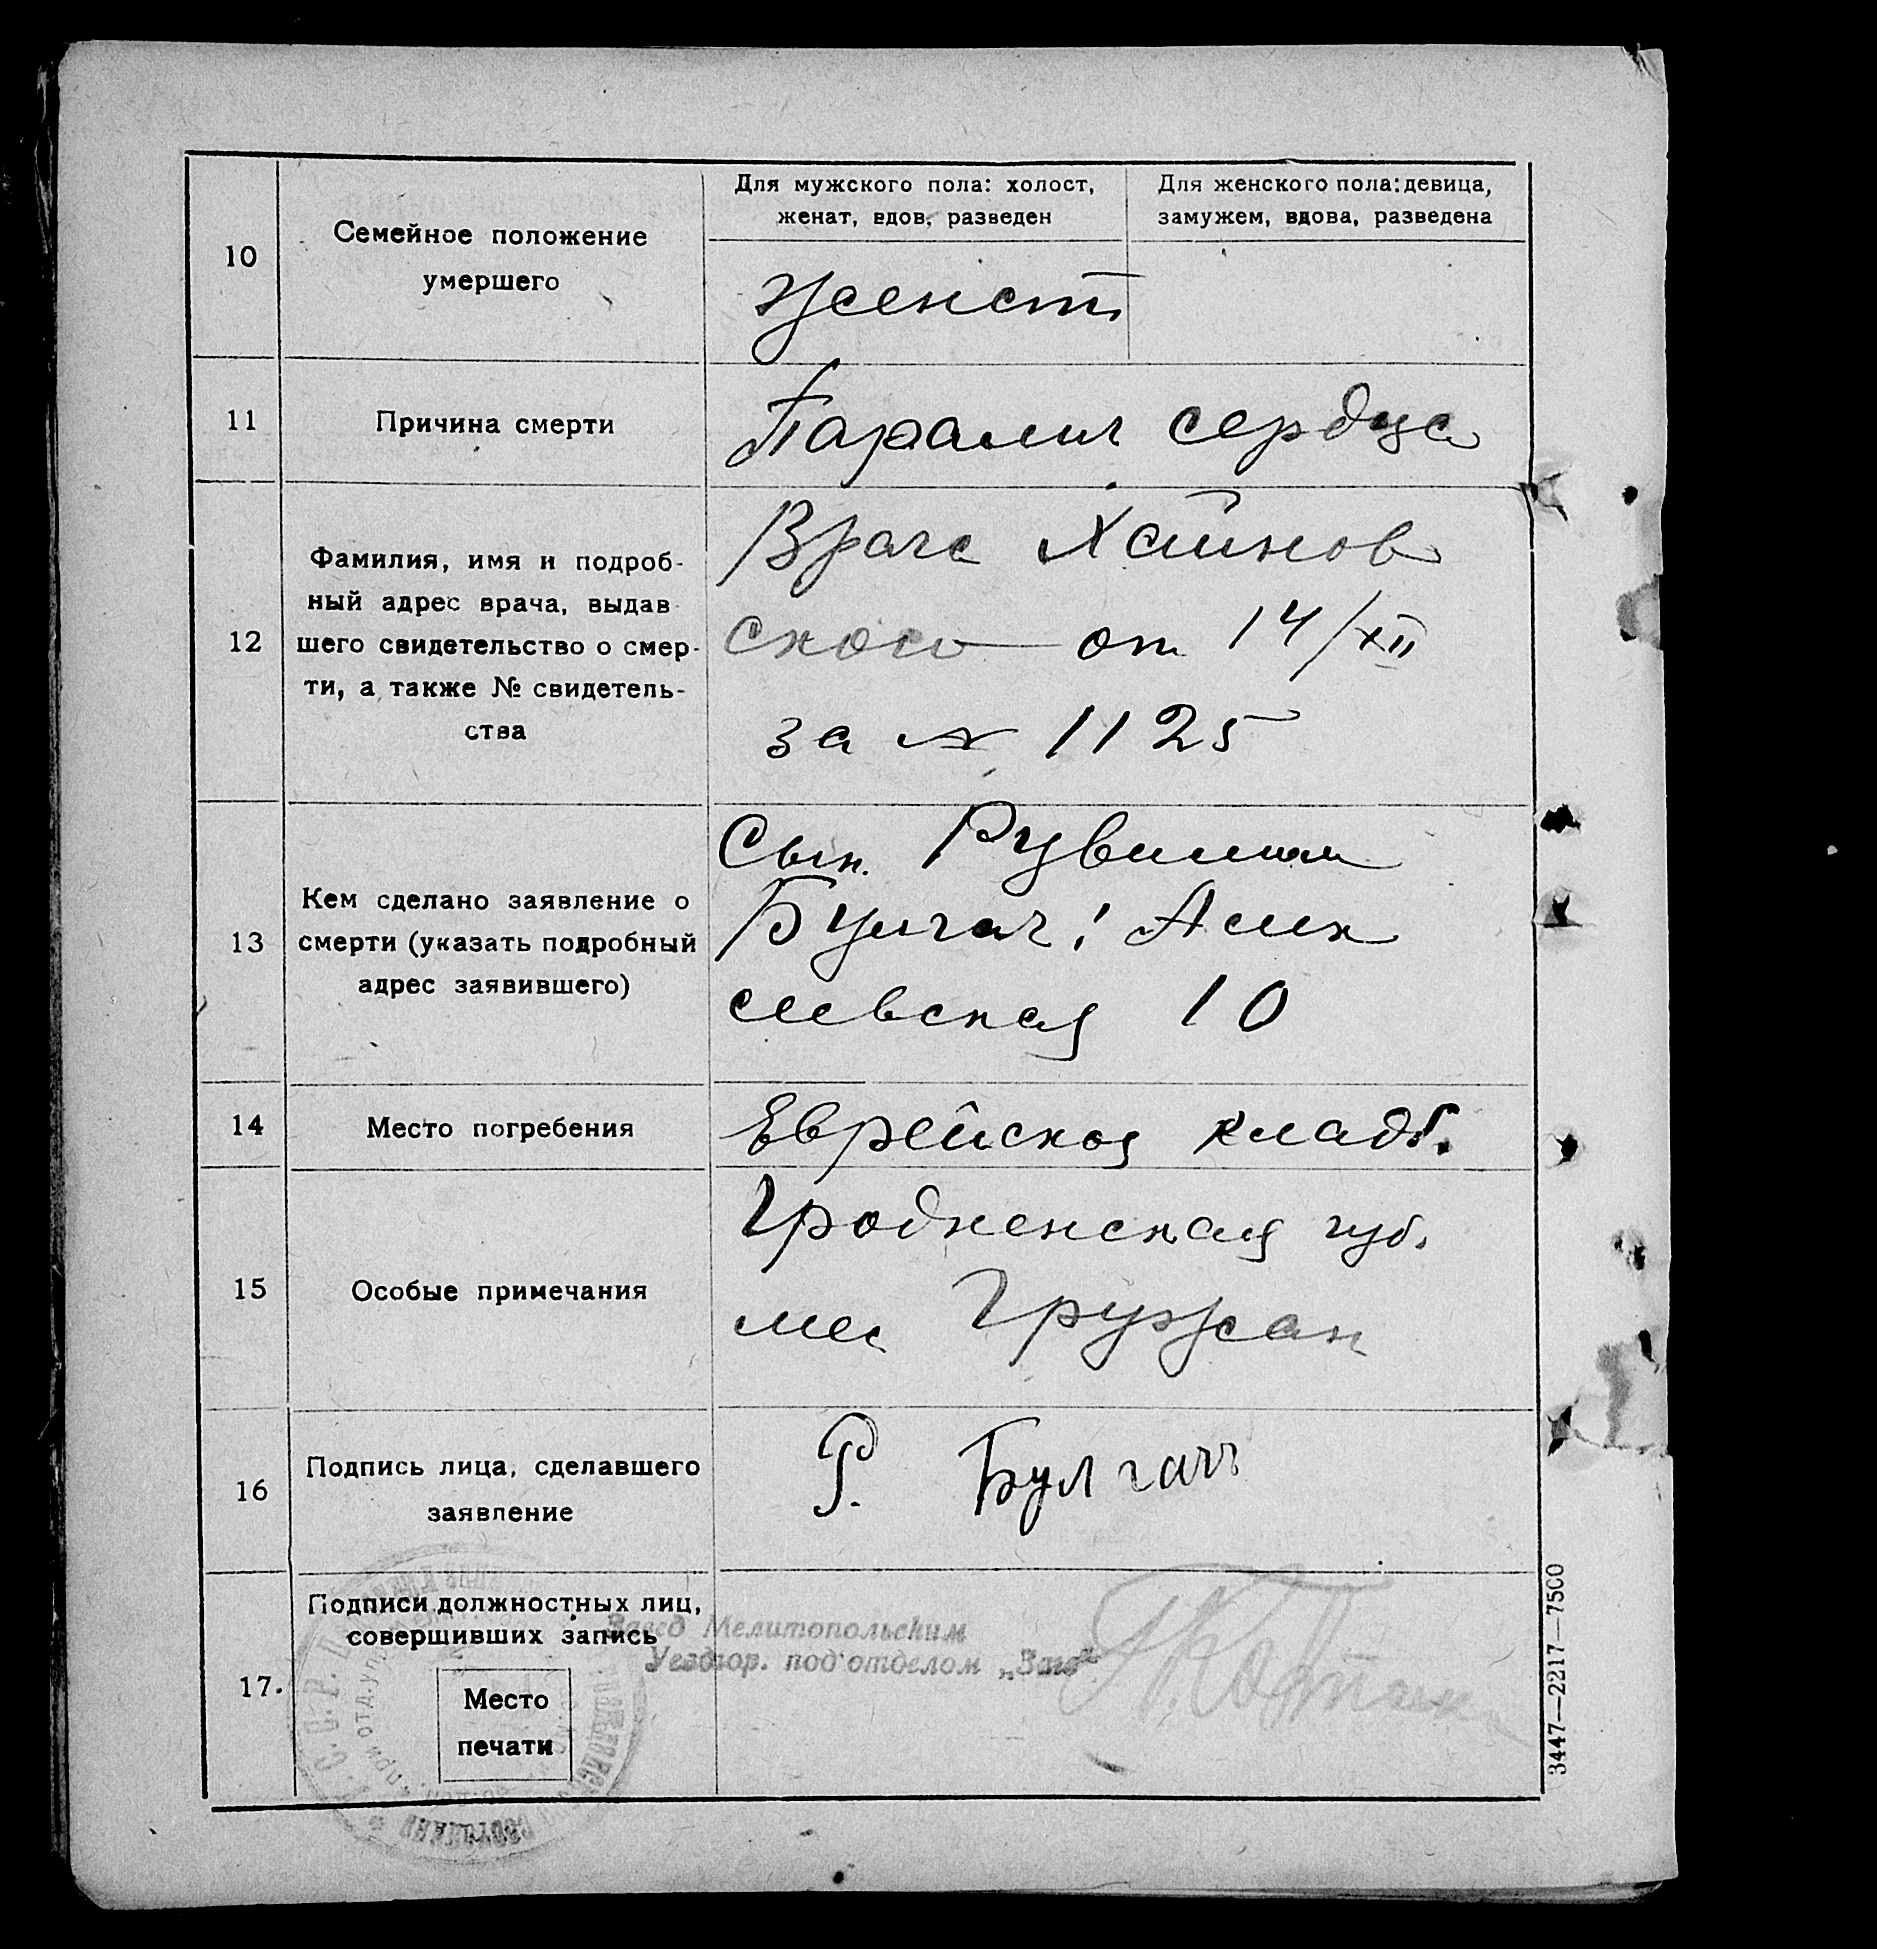 Для мужского пола: холост,
женат, вдов, разведен
Для женского пола: девица,
замужем, вдова, разведена
10
Семейное положение
умершего
11
Причина смерти
Паралич сердца
12
Фамилия, имя и подроб-
ный адрес врача, выдав-
шего свидетельство о смер-
ти, а также № свидетель-
ства
Врача Хайнов
ского от 14/XII
за № 1125
13
Кем сделано заявление о
смерти (указать подробный
адрес заявившего)
Сын. Рувим
Булгач: Алек
сеевская 10
14
Место погребения
Еврейское кладб.
15
Особые примечания
Гродненская губ.
мес Гружан
16
Подпись лица, сделавшего
заявление
Р. Булгач
17.
Подписи должностных лиц,
совершивших запись
Место
печати
Завед Мелитопольским
Уездгор. подотделом „Загс“
3447—2217—7500